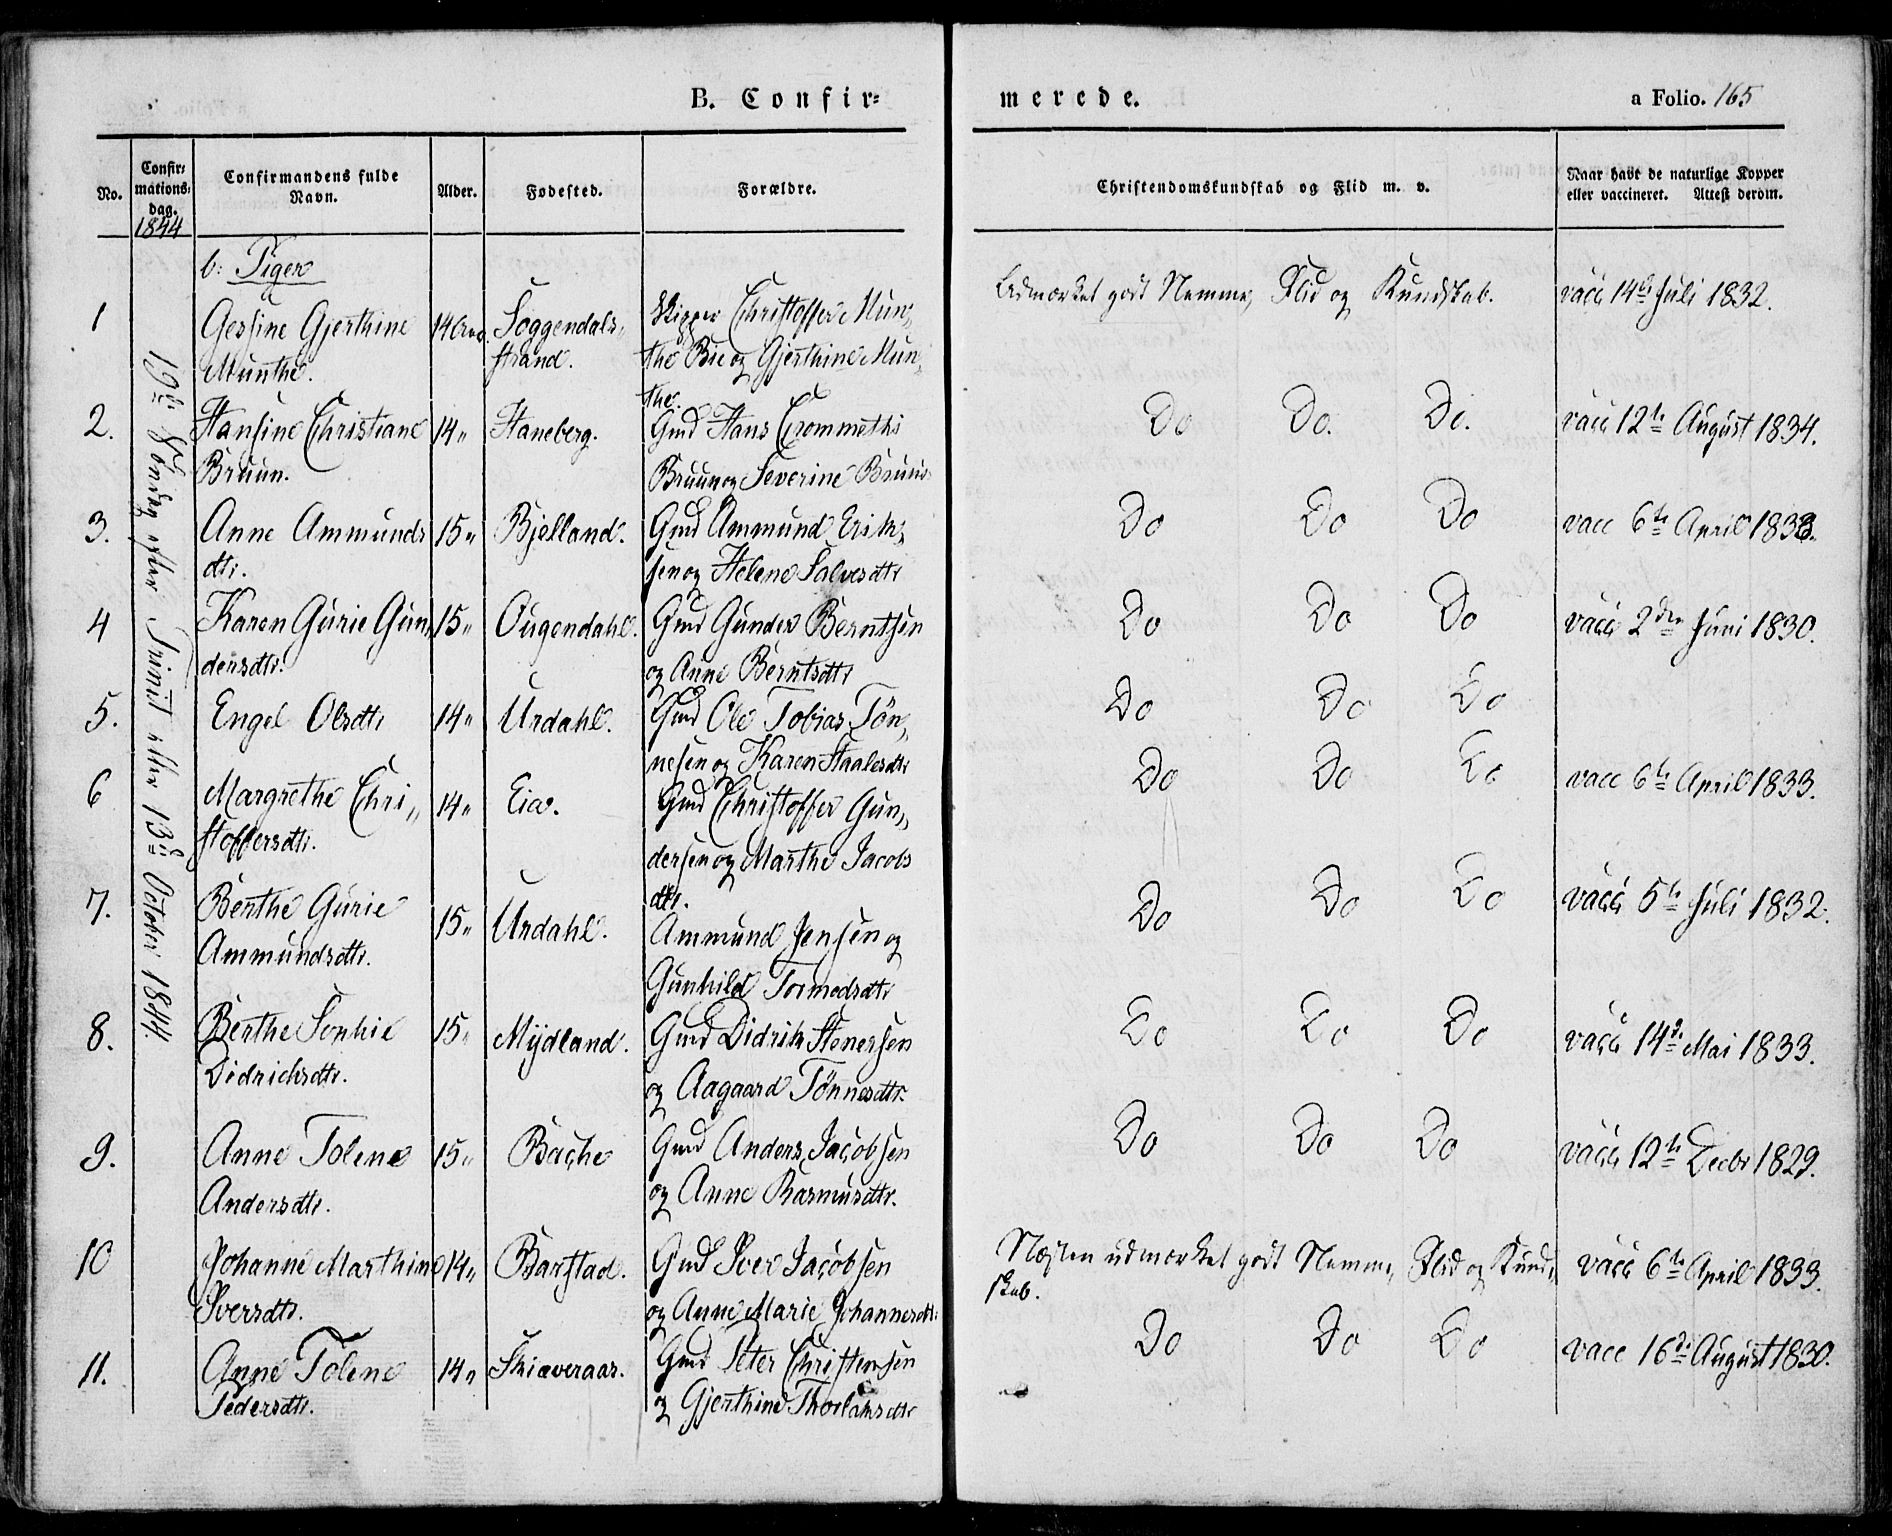 B. Confir=
merede.
a Folio. 165
No.
Confir=
mations=
dag.
1844
Confirmandens fulde
Navn.
Alder.
Fødested.
Forældre.
Christendomskundskab og Flid m. v.
Naar havt de naturlige Kopper
eller vaccineret. Attest derom.
19de Søndag efter Trinit eller 13de October 1844.
b: Piger
1 Gesine Gjerthine 14 Aar. Soggendals- Skipper Christoffer Mun- Udmærket godt Nemme, Flid og Kundskab. vacc 14de Juli 1832.
Munthe. strand. the Bie og Gjerthine Mun-
the.
2. Hansine Christiane 14 " Haneberg. Gmd Hans Do Do. Do. vacc 12te August 1834.
Bruun. Bruun og Severine Bruun
3. Anne Ammunds 15 " Bjelland. Gmd Ammund Erik- Do Do Do vacc 6te April 1833.
dtr. sen og Helene Salvesdtr
4 Karen Gurie Gun- 15 " Ougendahl. Gmd Gunder Berntsen Do Do Do vacc 2den Juni 1830.
dersdtr. og Anne Berntsdtr
5. Engel Olsdtr 14 " Urdahl. Gmd Ole Tobias Tøn- Do Do Do
nesen og Karen Staalesdtr
6 Margrethe Chri- 14 " Eia. Gmd Christoffer Gun- Do Do Do vacc 6te April 1833.
stoffersdtr. dersen og Marthe Jacobs
dtr.
7. Berthe Gurie 15 " Urdahl. Ammund Jensen og Do Do Do vacc 5te Juli 1832.
Ammundsdtr. Gunhild Tormodsdtr
8. Berthe Sophie 15 " Mydland. Gmd Didrik Stenersen Do Do Do vacc 14de Mai 1833.
Didrichsdtr. og Aagaard Tønnesdtr.
9. Anne Tolene 15 " Bache Gmd Anders Jacobsen Do Do Do vacc 12te Decbr 1829.
Andersdtr. og Anne Rasmusdtr.
10 Johanne Marthine 14 " Barstad. Gmd Iver Jacobsen Næsten udmærket godt Nemme, Flid og Kund- vacc 6te April 1833.
Iversdtr. og Anne Marie Johannesdtr. skab.
11. Anne Tolene 14 " Skiæveraas. Gmd Peter Christensen Do Do Do vacc 16de August 1830.
Pedersdtr. og Gjerthine Thorlaksdtr